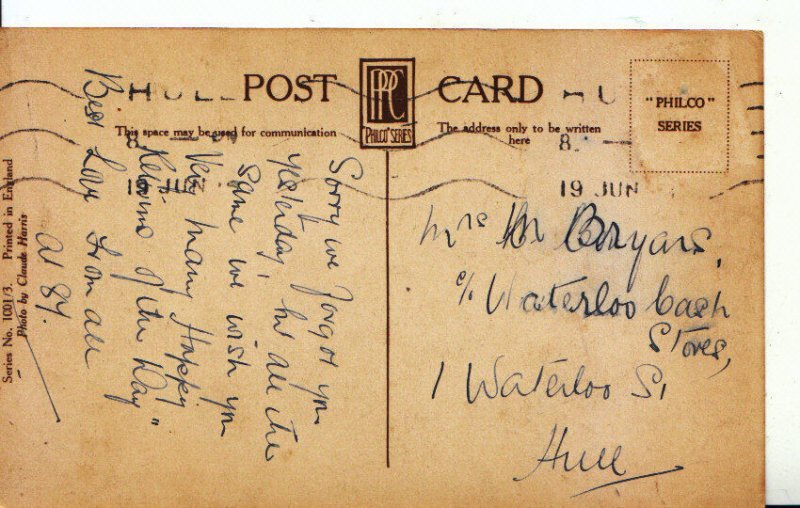 POST CARD
PPC
"PHILCO" SERIES
"PHILCO"
SERIES
This space may be used for communication
The address only to be written
here
HULL
HU
8.
8.
19 JUN
Sorry we forgot you
yesterday, but all the
same we wish you
Very many Happy
Returns of the Day"
Best Love from all
at 84.
Mrs M Bryars,
c/o Waterloo Cash
Stores,
1 Waterloo St
Hull
Series No. 1001/3. Printed in England
Photo by Claude Harris